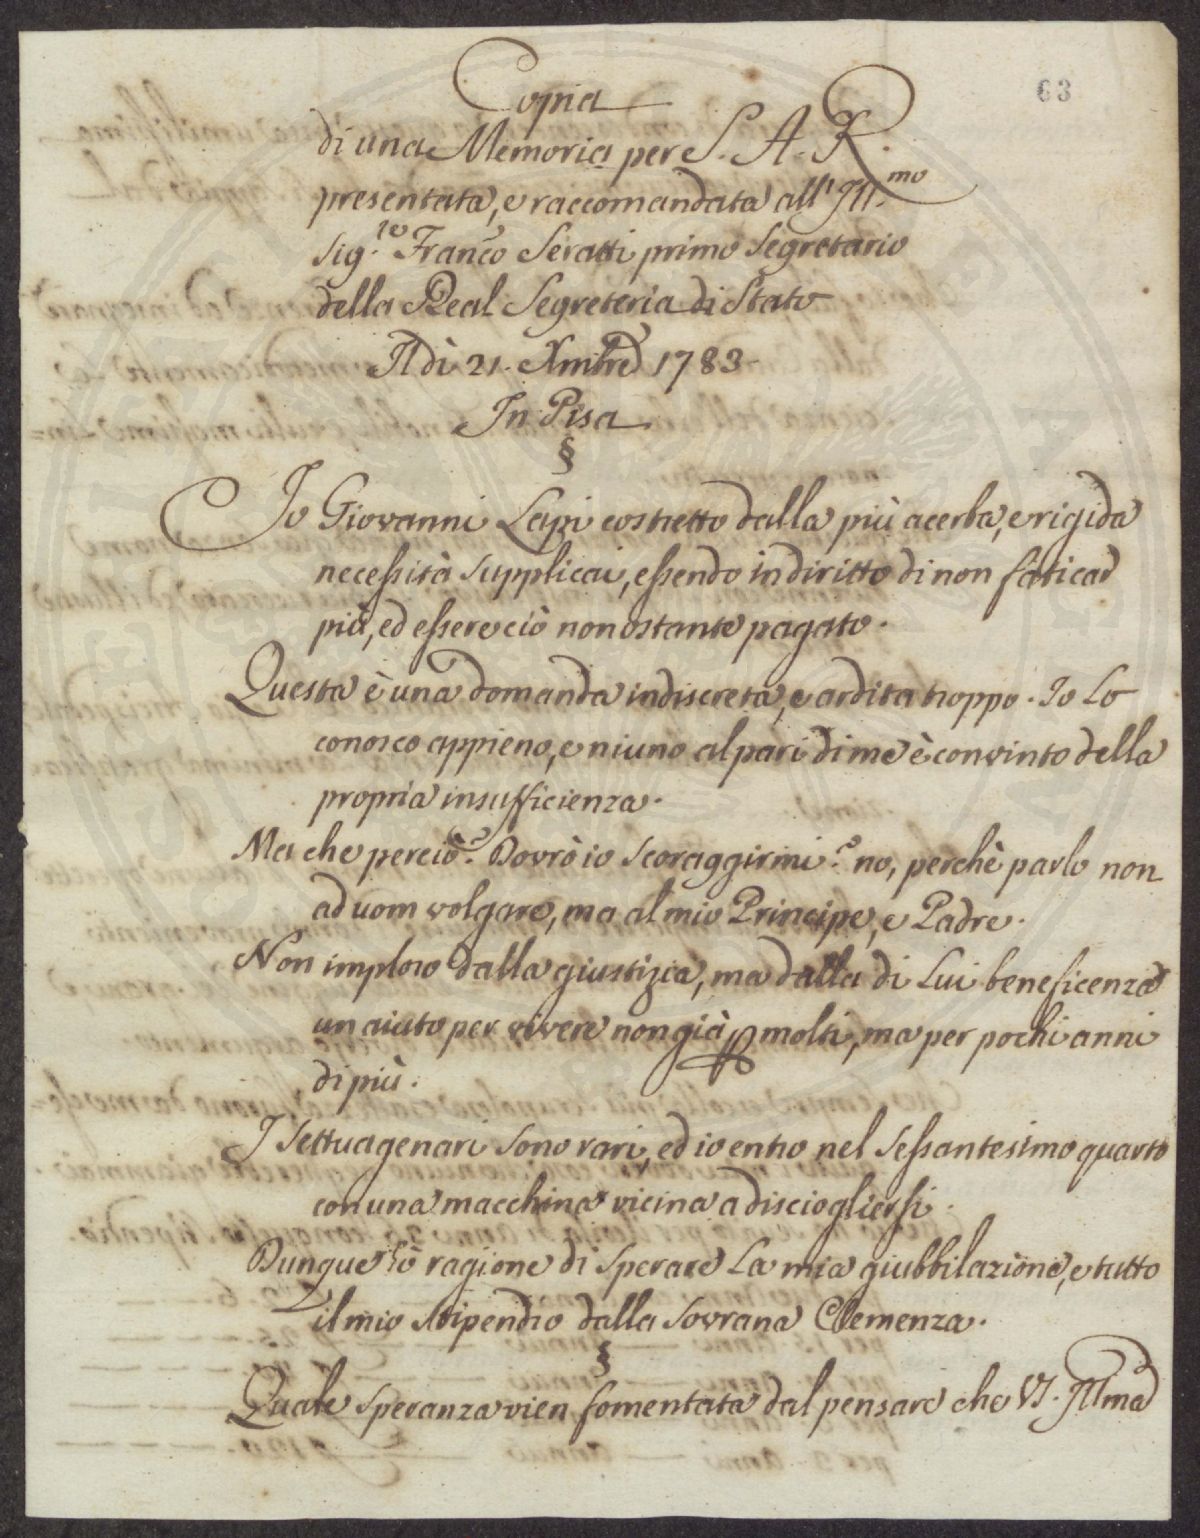 63
Copia
di una Memoria per S. A. R.
presentata, e raccomandata all' Ill.mo
Sig.re Franco Seratti primo Segretario
della Real Segreteria di Stato
A dì 21. Xmbre 1783
In Pisa
§
Io Giovanni Lapi costretto dalla più acerba, e rigida
necessità supplicai, essendo in diritto di non faticar
più, ed essere ciò non ostante pagato.
Questa è una domanda indiscreta, e ardita troppo. Io Lo
conosco appieno, e niuno al pari di me è convinto della
propria insufficienza.
Ma che perciò? Dovrò io scoraggirmi? no, perchè parlo non
ad uom volgare, ma al mio Principe, e Padre.
Non imploro dalla giustizia, ma dalla di Lui beneficenza
un aiuto per vivere non già p molti, ma per pochi anni
di più.
I settuagenari sono rari, ed io entro nel sessantesimo quarto
con una macchina vicina a disciogliersi.
Dunque hò ragione di sperare La mia giubbilazione, e tutto
il mio stipendio dalla Sovrana Clemenza.
§
Quale speranza vien fomentata dal pensare che VS. Illma